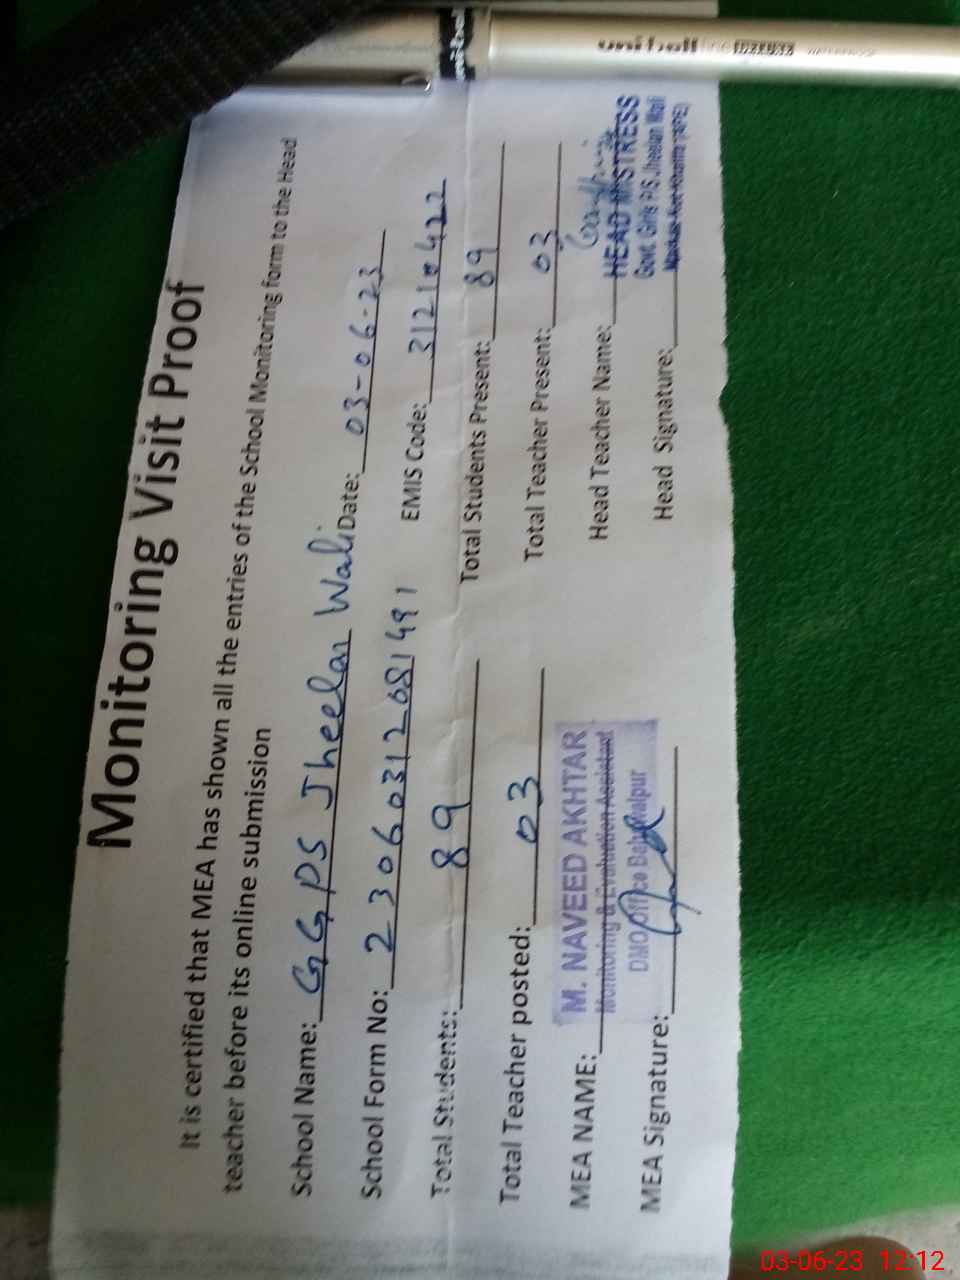 Monitoring Visit Proof
It is certified that MEA has shown all the entries of the School Monitoring form to the Head
teacher before its online submission
School Name: GGPS Jheelan Wali Date: 03-06-23
School Form No: 23060312081491 EMIS Code: 31210422
Total Students: 89 Total Students Present: 89
Total Teacher posted: 03 Total Teacher Present: 03
MEA NAME: M. NAVEED AKHTAR Head Teacher Name: HEAD MISTRESS
Monitoring & Evaluation Assistant Govt. Girls P/S Jheelan Wali
DMO Office Bahawalpur
MEA Signature: Head Signature:
uniball
uniball
03-06-23 12:12